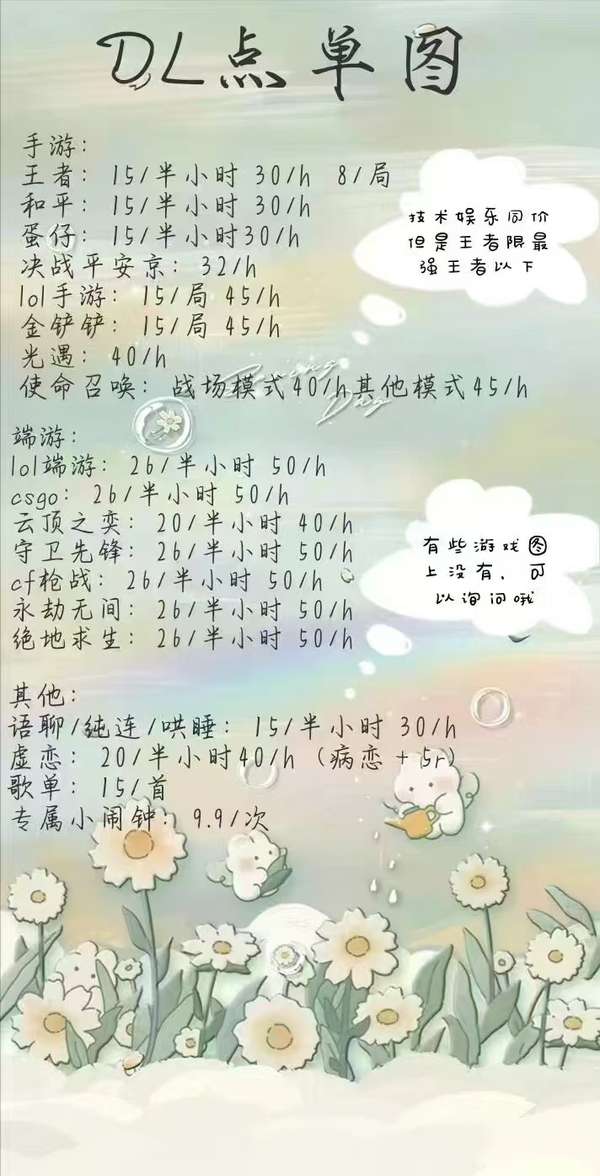 DL点单图
手游：
王者：15/半小时 30/h 8/局
和平：15/半小时 30/h
蛋仔：15/半小时30/h
决战平安京：32/h
lol手游：15/局 45/h
金铲铲：15/局 45/h
光遇：40/h
使命召唤：战场模式40/h其他模式45/h
技术娱乐同价
但是王者限最
强王者以下
端游：
lol端游：26/半小时 50/h
csgo：26/半小时 50/h
云顶之奕：20/半小时 40/h
守卫先锋：26/半小时 50/h
cf枪战：26/半小时 50/h
永劫无间：26/半小时 50/h
绝地求生：26/半小时 50/h
有些游戏图
上没有，可
以询问哦
其他：
语聊/纯连/哄睡：15/半小时 30/h
虚恋：20/半小时40/h（病恋+5r）
歌单：15/首
专属小闹钟：9.9/次